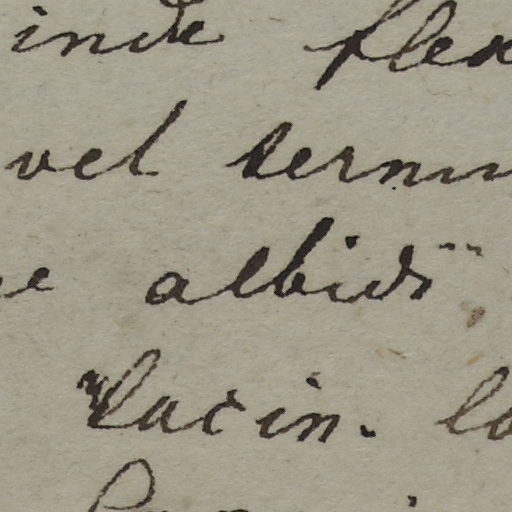 inde flex
vel termin
albidis
lacin. lo